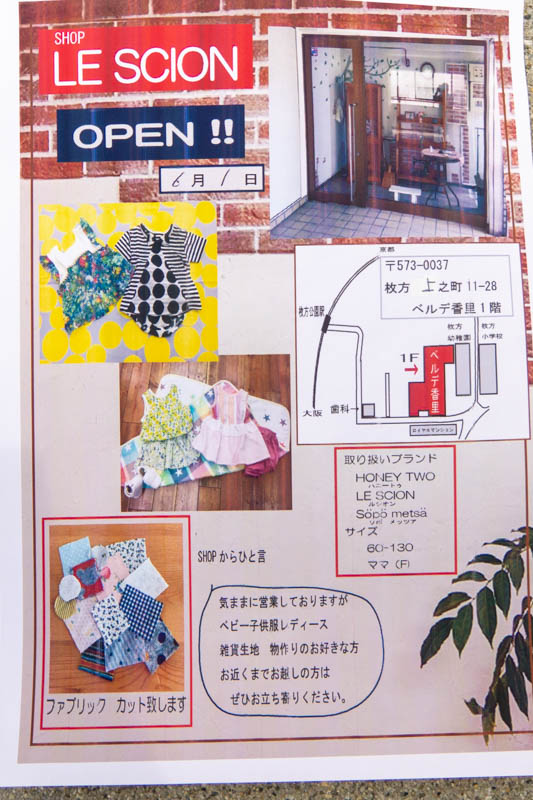 SHOP
LE SCION
OPEN !!
6月1日
〒573-0037
枚方 上之町 11-28
ベルデ香里1階
京都
枚方公園駅
枚方
幼稚園
枚方
小学校
1F
→
ベルデ香里
大阪
歯科→
ロイヤルマンション
取り扱いブランド
HONEY TWO
ハニートゥ
LE SCION
ルシオン
Söpö metsä
ソポ メッツア
サイズ
60-130
ママ (F)
SHOPからひと言
気ままに営業しておりますが
ベビー子供服レディース
雑貨生地 物作りのお好きな方
お近くまでお越しの方は
ぜひお立ち寄りください。
ファブリック カット致します